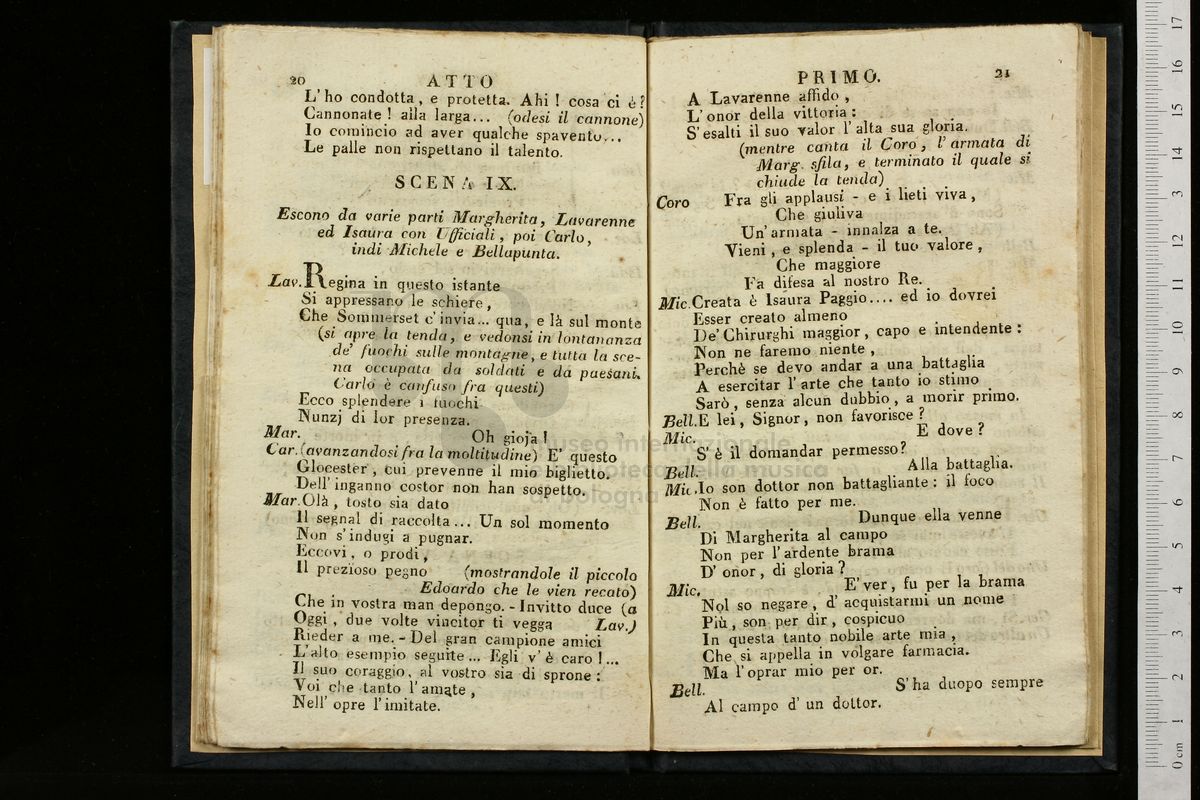 20
ATTO
L' ho condotta, e protetta. Ahi ! cosa ci è?
Cannonate ! alla larga... (odesi il cannone)
Io comincio ad aver qualche spavento...
Le palle non rispettano il talento.
SCENA IX.
Escono da varie parti Margherita, Lavarenne
ed Isaura con Ufficiali, poi Carlo,
indi Michele e Bellapunta.
Lav. Regina in questo istante
Si appressano le schiere,
Che Sommerset c' invia... qua, e là sul monte
(si apre la tenda, e vedonsi in lontananza
de' fuochi sulle montagne, e tutta la sce-
na occupata da soldati e da paesani.
Carlo è confuso fra questi)
Ecco splendere i fuochi
Nunzj di lor presenza.
Mar. Oh gioja !
Car. (avanzandosi fra la moltitudine) E' questo
Glocester, cui prevenne il mio biglietto.
Dell' inganno costor non han sospetto.
Mar. Olà, tosto sia dato
Il segnal di raccolta... Un sol momento
Non s' indugi a pugnar.
Eccovi, o prodi,
Il prezioso pegno (mostrandole il piccolo
Edoardo che le vien recato)
Che in vostra man depongo. - Invitto duce (a
Oggi, due volte vincitor ti vegga Lav.)
Rieder a me. - Del gran campione amici
L' alto esempio seguite... Egli v' è caro !...
Il suo coraggio, al vostro sia di sprone :
Voi che tanto l' amate,
Nell' opre l' imitate.
PRIMO.
21
A Lavarenne affido,
L' onor della vittoria :
S' esalti il suo valor l' alta sua gloria.
(mentre canta il Coro, l' armata di
Marg. sfila, e terminato il quale si
chiude la tenda)
Coro Fra gli applausi - e i lieti viva,
Che giuliva
Un' armata - innalza a te.
Vieni, e splenda - il tuo valore,
Che maggiore
Fa difesa al nostro Re.
Mic. Creata è Isaura Paggio.... ed io dovrei
Esser creato almeno
De' Chirurghi maggior, capo e intendente :
Non ne faremo niente,
Perchè se devo andar a una battaglia
A esercitar l' arte che tanto io stimo
Sarò, senza alcun dubbio, a morir primo.
Bell. E lei, Signor, non favorisce ?
Mic. E dove ?
S' è il domandar permesso?
Bell. Alla battaglia.
Mic. Io son dottor non battagliante : il foco
Non è fatto per me.
Bell. Dunque ella venne
Di Margherita al campo
Non per l' ardente brama
D' onor, di gloria ?
Mic. E' ver, fu per la brama
Nol so negare, d' acquistarmi un nome
Più, son per dir, cospicuo
In questa tanto nobile arte mia,
Che si appella in volgare farmacia.
Ma l' oprar mio per or.
Bell. S' ha duopo sempre
Al campo d' un dottor.
museo internazionale
e biblioteca della musica
di bologna
0 cm 1 2 3 4 5 6 7 8 9 10 11 12 13 14 15 16 17